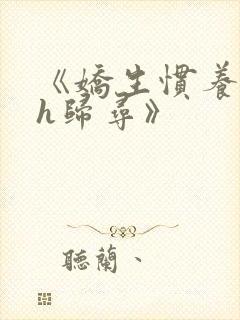 《嬌生慣養
h歸尋》
聽蘭、